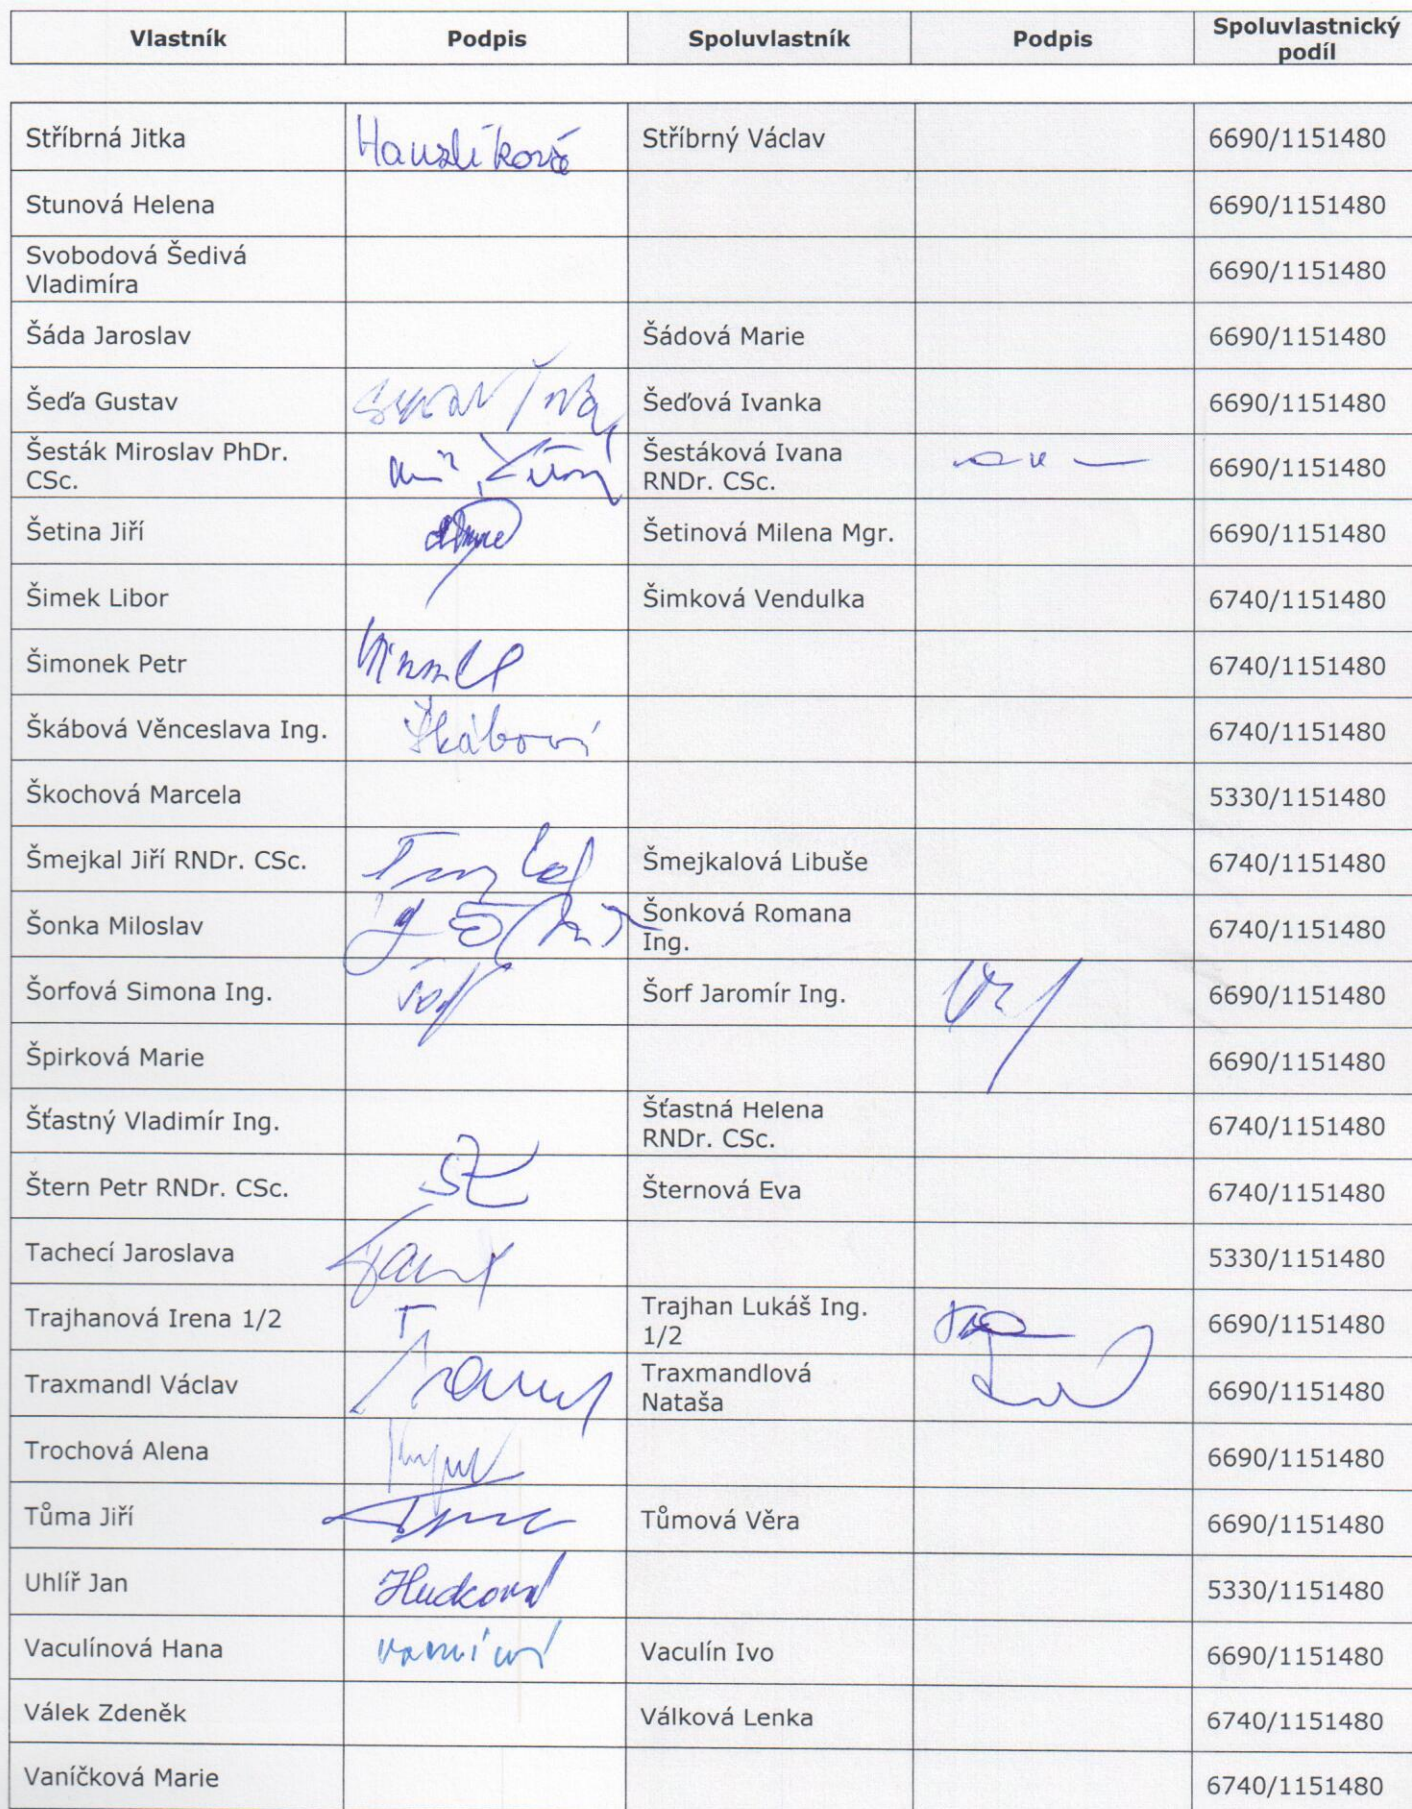 Vlastník Podpis Spoluvlastník Podpis Spoluvlastnický
podíl
Stříbrná Jitka Hauzlíková Stříbrný Václav 6690/1151480
Stunová Helena 6690/1151480
Svobodová Šedivá
Vladimíra 6690/1151480
Šáda Jaroslav Šádová Marie 6690/1151480
Šeďa Gustav Šeďová Ivanka 6690/1151480
Šesták Miroslav PhDr. Šestáková Ivana
CSc. RNDr. CSc. 6690/1151480
Šetina Jiří Šetinová Milena Mgr. 6690/1151480
Šimek Libor Šimková Vendulka 6740/1151480
Šimonek Petr 6740/1151480
Škábová Věnceslava Ing. Škábová 6740/1151480
Škochová Marcela 5330/1151480
Šmejkal Jiří RNDr. CSc. Šmejkalová Libuše 6740/1151480
Šonka Miloslav Šonková Romana
Ing. 6740/1151480
Šorfová Simona Ing. Šorf Jaromír Ing. 6690/1151480
Špirková Marie 6690/1151480
Šťastný Vladimír Ing. Šťastná Helena
RNDr. CSc. 6740/1151480
Štern Petr RNDr. CSc. Šternová Eva 6740/1151480
Tachecí Jaroslava 5330/1151480
Trajhanová Irena 1/2 Trajhan Lukáš Ing.
1/2 6690/1151480
Traxmandl Václav Traxmandlová
Nataša 6690/1151480
Trochová Alena 6690/1151480
Tůma Jiří Tůmová Věra 6690/1151480
Uhlíř Jan Hudcová 5330/1151480
Vaculínová Hana Vaculín Ivo 6690/1151480
Válek Zdeněk Válková Lenka 6740/1151480
Vaníčková Marie 6740/1151480